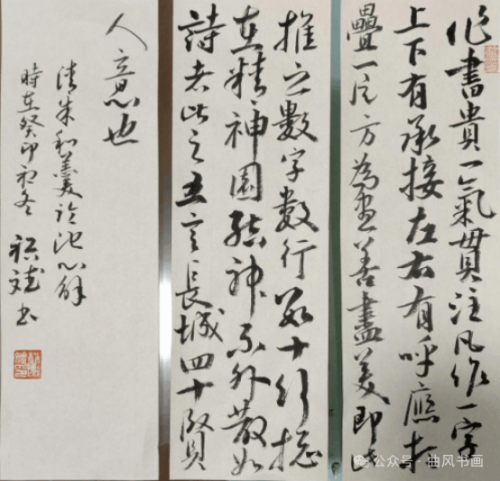 作書貴一氣貫注凡作一字
上下有承接左右有呼應打
疊一片方為盡善盡美即此
推之數字數行數十行總
在精神團結神不外散如
詩者此之五言長城四十賢
人意也
清朱和羹臨池心解
時在癸卯初冬
斌書
公众号·曲风书画